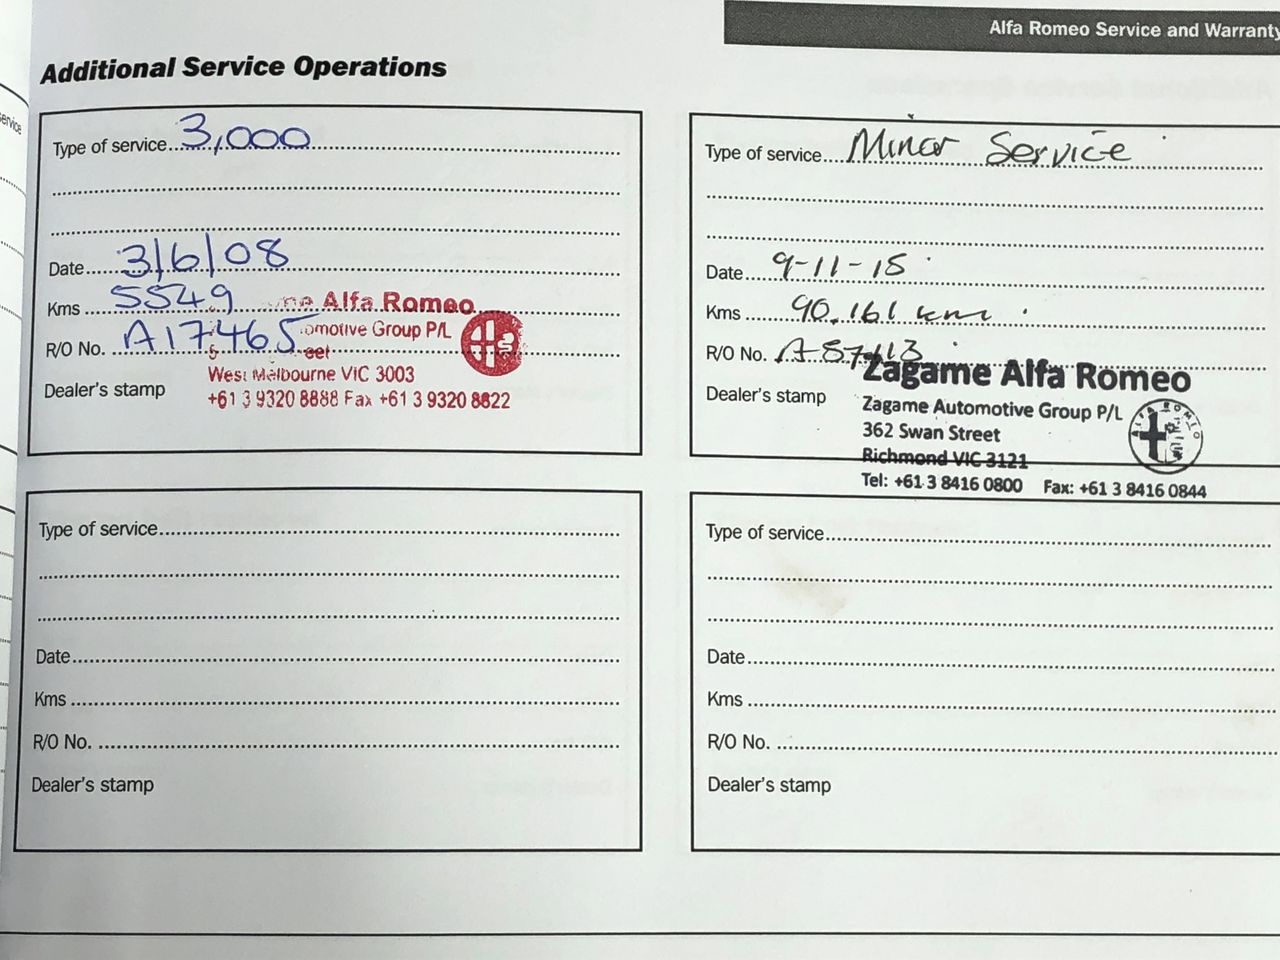 Alfa Romeo Service and Warranty
Additional Service Operations
Type of service 3,000
Date 3/6/08
Kms 5549
R/O No. A17465
Dealer's stamp
Alfa Romeo
Automotive Group P/L
West Melbourne VIC 3003
+61 3 9320 8888 Fax +61 3 9320 8822
Type of service Minor Service
Date 9-11-15
Kms 90.161 km
R/O No.
Dealer's stamp
Zagame Alfa Romeo
Zagame Automotive Group P/L
362 Swan Street
Richmond VIC 3121
Tel: +61 3 8416 0800 Fax: +61 3 8416 0844
Type of service
Date
Kms
R/O No.
Dealer's stamp
Type of service
Date
Kms
R/O No.
Dealer's stamp